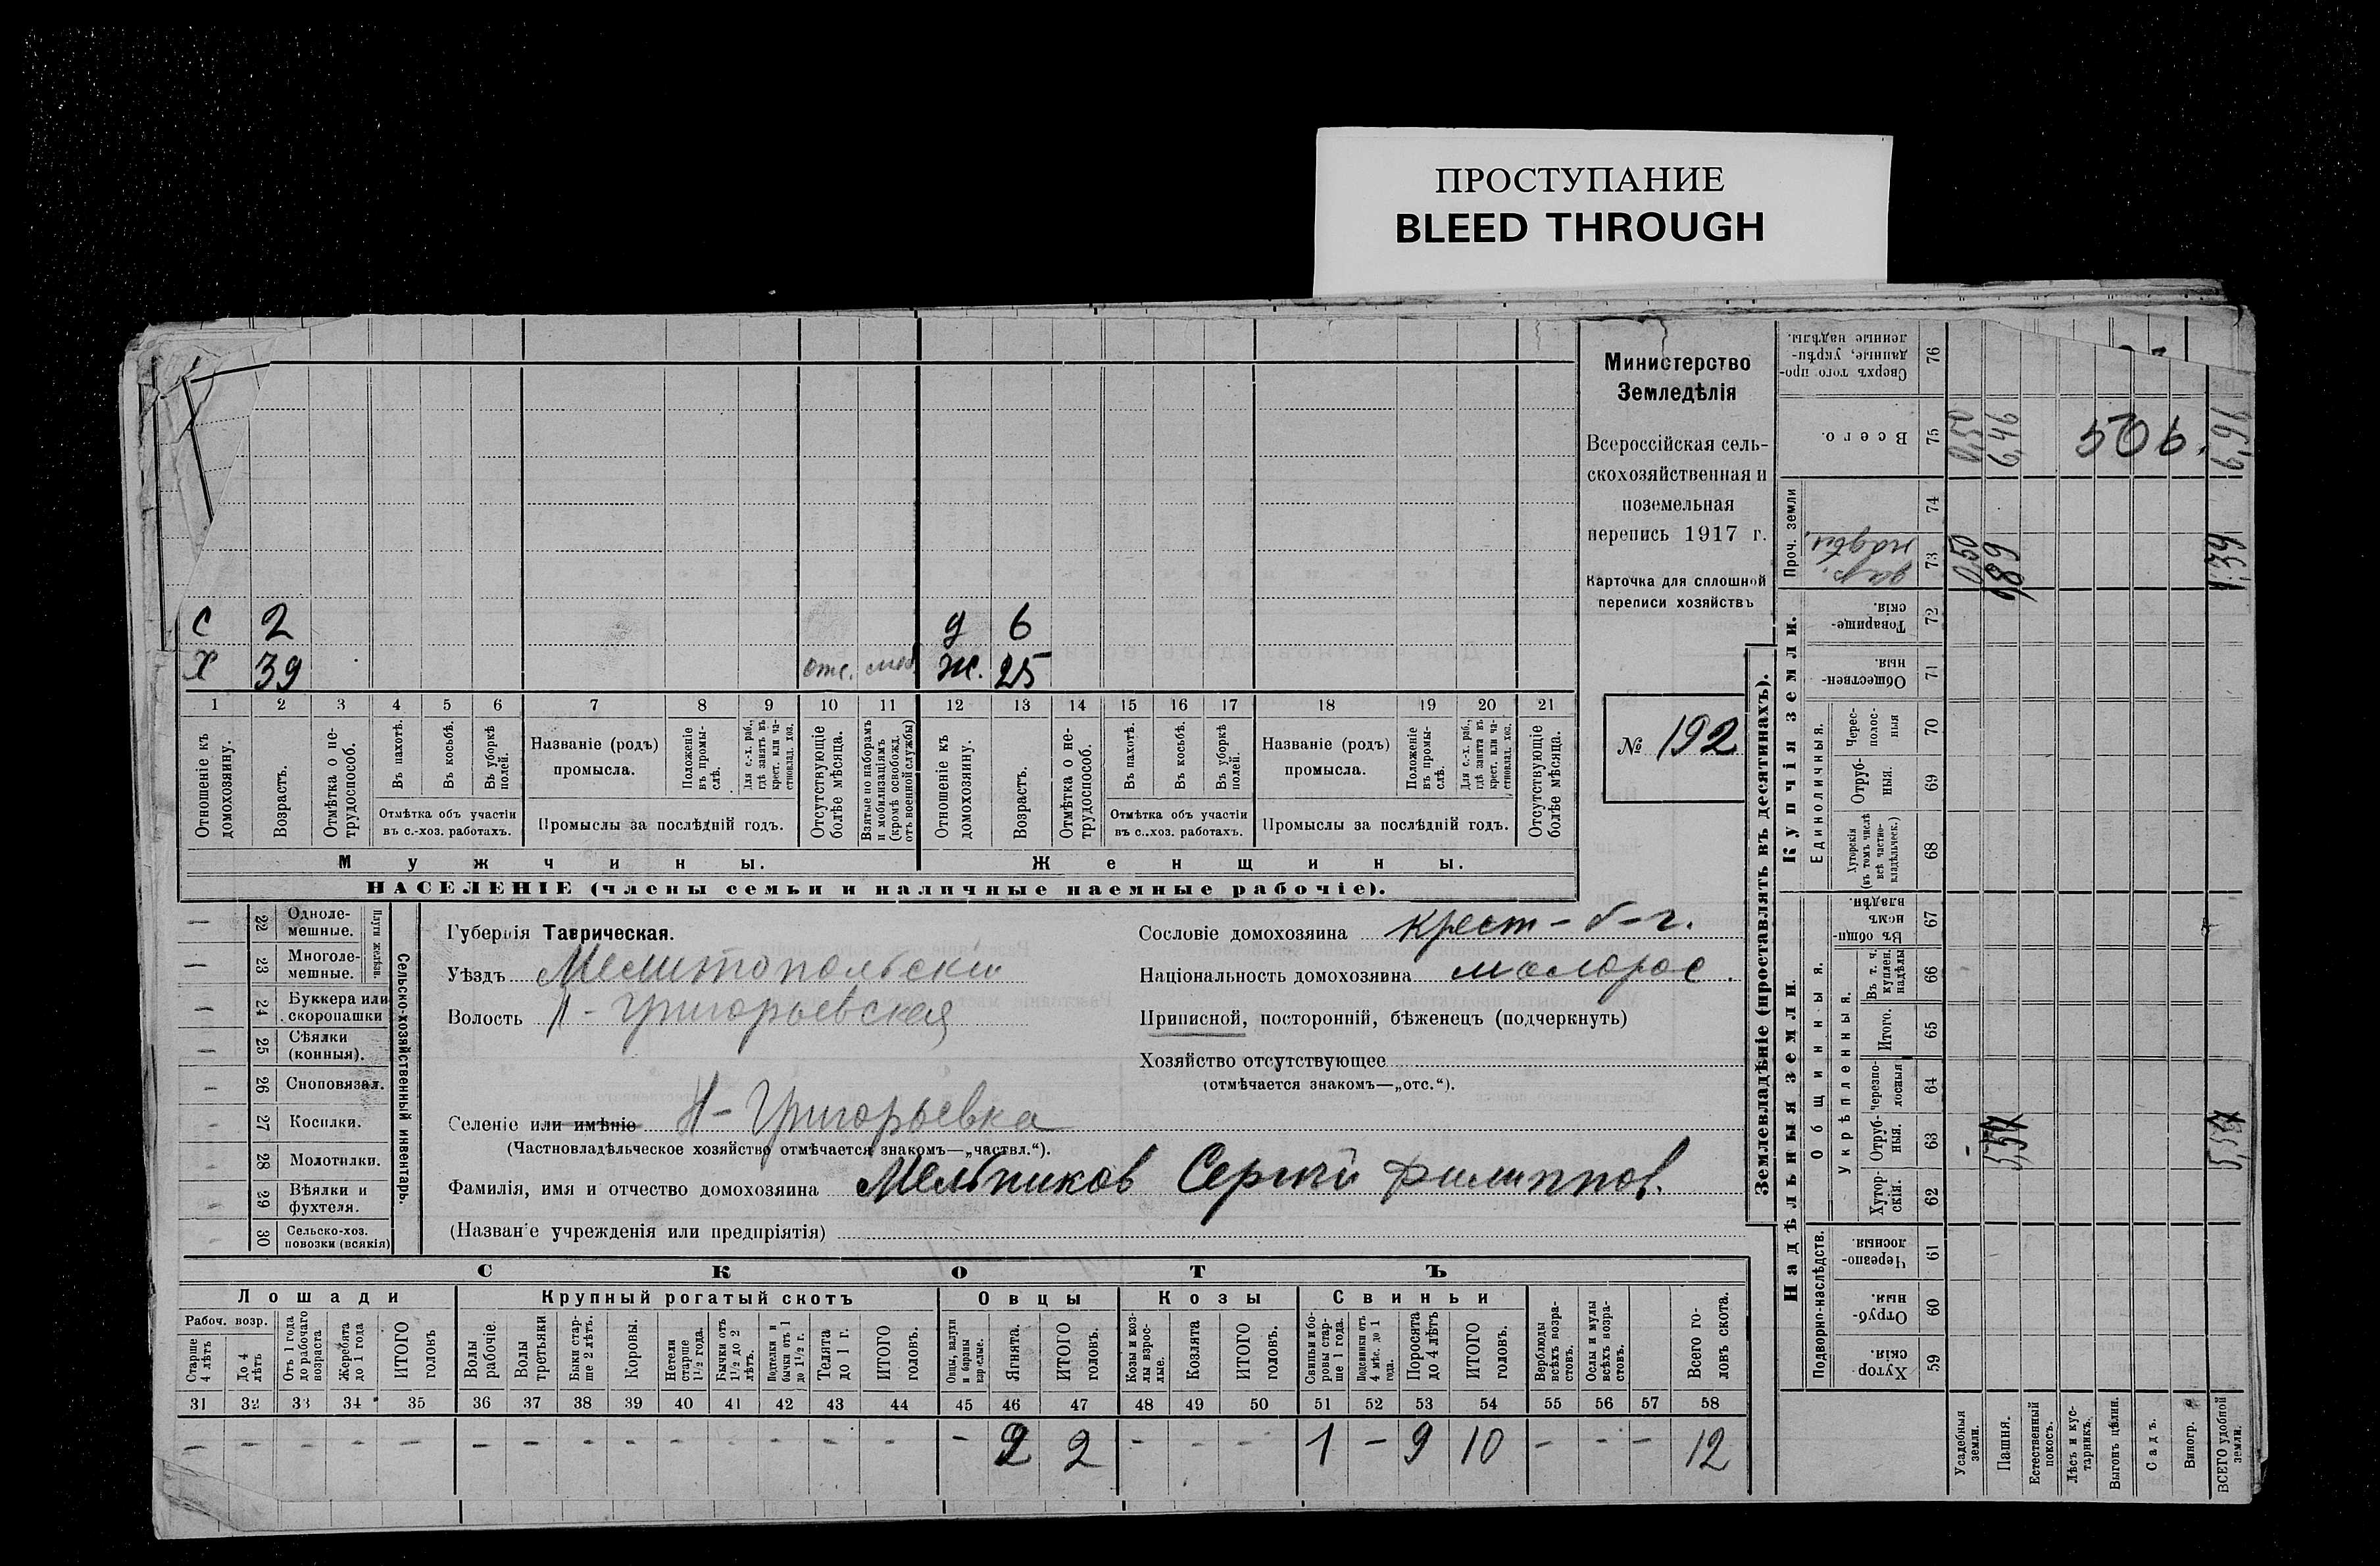 ПРОСТУПАНИЕ
BLEED THROUGH
С 2 д 6
Х 39 отс. моб. Ж. 25
1 2 3 4 5 6 7 8 9 10 11 12 13 14 15 16 17 18 19 20 21
Отношеніе къ домохозяину.
Возрастъ.
Отмѣтка о не-трудоспособ.
Въ пахотѣ.
Въ косьбѣ.
Въ уборкѣ полей.
Отмѣтка объ участіи
въ с.-хоз. работахъ.
Названіе (родъ)
промысла.
Положеніе въ промы-слѣ.
Для с.-х. раб., гдѣ занятъ въ крест. или ча-стновлад. хоз.
Промыслы за послѣдній годъ.
Отсутствующіе болѣе мѣсяца.
Взятые по наборамъ и мобилизаціямъ (кромѣ освобожд. отъ военной службы)
Отношеніе къ домохозяину.
Возрастъ.
Отмѣтка о не-трудоспособ.
Въ пахотѣ.
Въ косьбѣ.
Въ уборкѣ полей.
Отмѣтка объ участіи
въ с..хоз. работахъ.
Названіе (родъ)
промысла.
Положеніе въ промы-слѣ.
Для с.-х. раб., гдѣ занята въ крест. или ча-стновлад. хоз.
Промыслы за послѣдній годъ.
Отсутствующіе болѣе мѣсяца.
Мужчины. Женщины.
НАСЕЛЕНІЕ (члены семьи и наличные наемные рабочіе).
Министерство
Земледѣлія
Всероссійская сель-
скохозяйственная и
поземельная
перепись 1917 г.
Карточка для сплошной
переписи хозяйствъ
№ 192
— 22 Одноле-мешные.
— 23 Многоле-мешные.
Плуги желѣзн.
— 24 Буккера или скоропашки
— 25 Сѣялки (конныя).
— 26 Сноповязал.
— 27 Косилки.
— 28 Молотилки.
— 29 Вѣялки и фухтеля.
— 30 Сельско-хоз. повозки (всякія)
Сельско-хозяйственный инвентарь.
Губернія Таврическая.
Уѣздъ Мелитопольски
Волость Н-Григорьевская
Селеніе или имѣніе Н-Григорьевка
(Частновладѣльческое хозяйство отмѣчается знакомъ—„частвл.“).
Фамилія, имя и отчество домохозяина Мельников Сергѣй Филиппов.
(Названіе учрежденія или предпріятія)
Сословіе домохозяина крест-б-г.
Національность домохозяина малорос.
Приписной, посторонній, бѣженецъ (подчеркнуть)
Хозяйство отсутствующее
(отмѣчается знакомъ—„отс.“).
СКОТЪ
Лошади Крупный рогатый скотъ Овцы Козы Свиньи
Рабоч. возр.
Старше 4 лѣтъ
До 4 лѣтъ
Отъ 1 года до рабочаго возраста
Жеребята до 1 года
ИТОГО головъ
Волы рабочіе.
Волы третьяки
Быки стар-ше 2 лѣтъ.
Коровы.
Нетели старше 1½ года.
Бычки отъ 1½ до 2 лѣтъ.
Подтелки и бычки отъ 1 до 1½ г.
Телята до 1 г.
ИТОГО головъ.
Овцы, валухи и бараны взрослые.
Ягнята.
ИТОГО головъ.
Козы и коз-лы взрос-лые.
Козлята
ИТОГО головъ.
Свиньи и бо-ровы стар-ше 1 года.
Подсвинки отъ 4 мѣс. до 1 года.
Поросята до 4 лѣтъ
ИТОГО головъ.
Верблюды всѣхъ возра-стовъ.
Ослы и мулы всѣхъ возра-стовъ.
Всего го-ловъ скота.
31 32 33 34 35 36 37 38 39 40 41 42 43 44 45 46 47 48 49 50 51 52 53 54 55 56 57 58
— — — — — — — — — — — — — — — 2 2 — — — 1 — 9 10 — — — 12
Землевладѣніе (проставлять въ десятинахъ).
Купчія земли.
Проч. земли
Надѣльныя земли.
Единоличныя.
Общинныя.
Укрѣпленныя.
Подворно-наслѣдств.
Сверхъ того про-данные, укрѣп-ленные надѣлы. 76
Всего. 75 0,50 6,46 506. 6,96
74
73 0,50 0,89 1,39
Товарище-скія. 72
Обществен-ныя. 71
Черес-полос-ныя 70
Отруб-ныя. 69
Хуторскія (въ томъ числѣ всѣ частно-владѣльческ.) 68
Въ общи-немъ владѣн. 67
Въ т. ч. куплен. надѣлы 66
Итого. 65
Черезпо-лосныя 64
Отруб-ныя. 63 - 5,57 5,57
Хутор-скія. 62
Черезпо-лосныя. 61
Отруб-ныя. 60
Хутор-скія. 59
Усадебныя земли.
Пашня.
Естественный покосъ.
Лѣсъ и кус-тарникъ.
Выгонъ цѣлин.
Садъ.
Виногр.
ВСЕГО удобной земли.